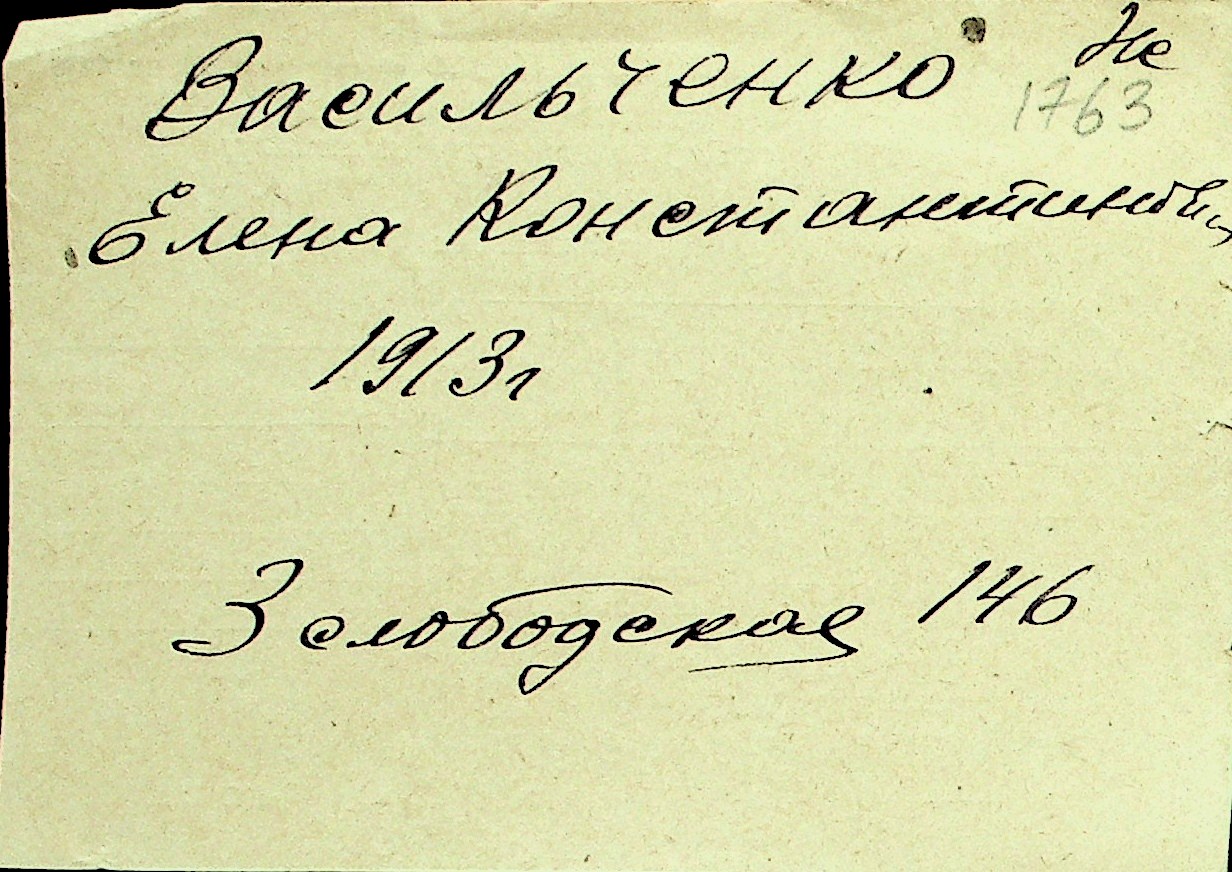 Васильченко Не
1763
Елена Константинови
1913г
3 слободская 146